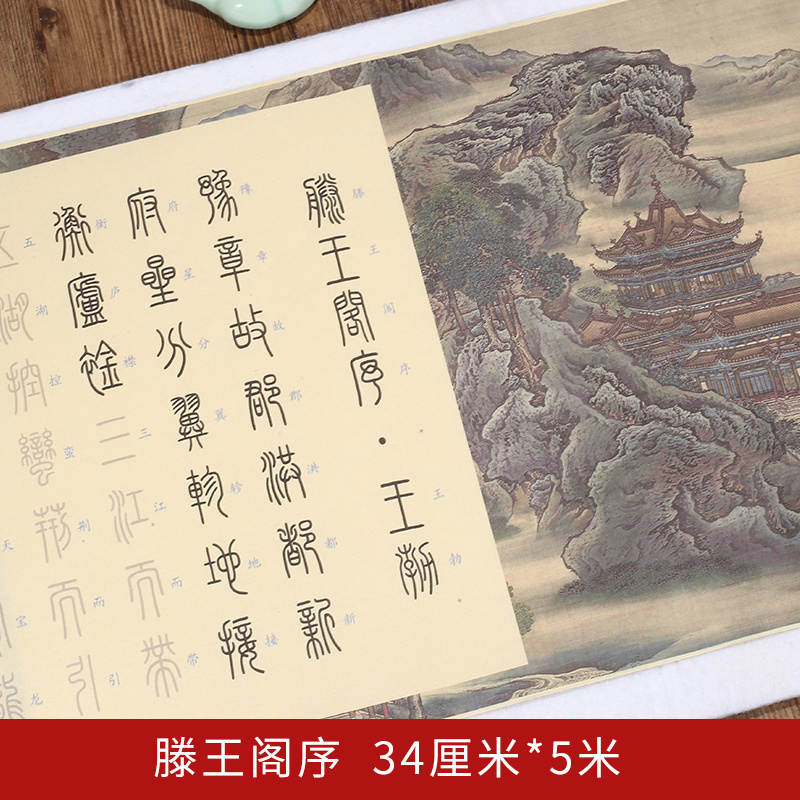 滕王閣序·王勃
滕王阁序王勃
豫章故郡洪都新
豫章故郡洪都新
府星分翼軫地接
府星分翼轸地接
衡廬襟三江而帶
衡庐襟三江而带
五湖控蠻荊而引
五湖控蛮荆而引
天宝龙
滕王阁序 34厘米*5米